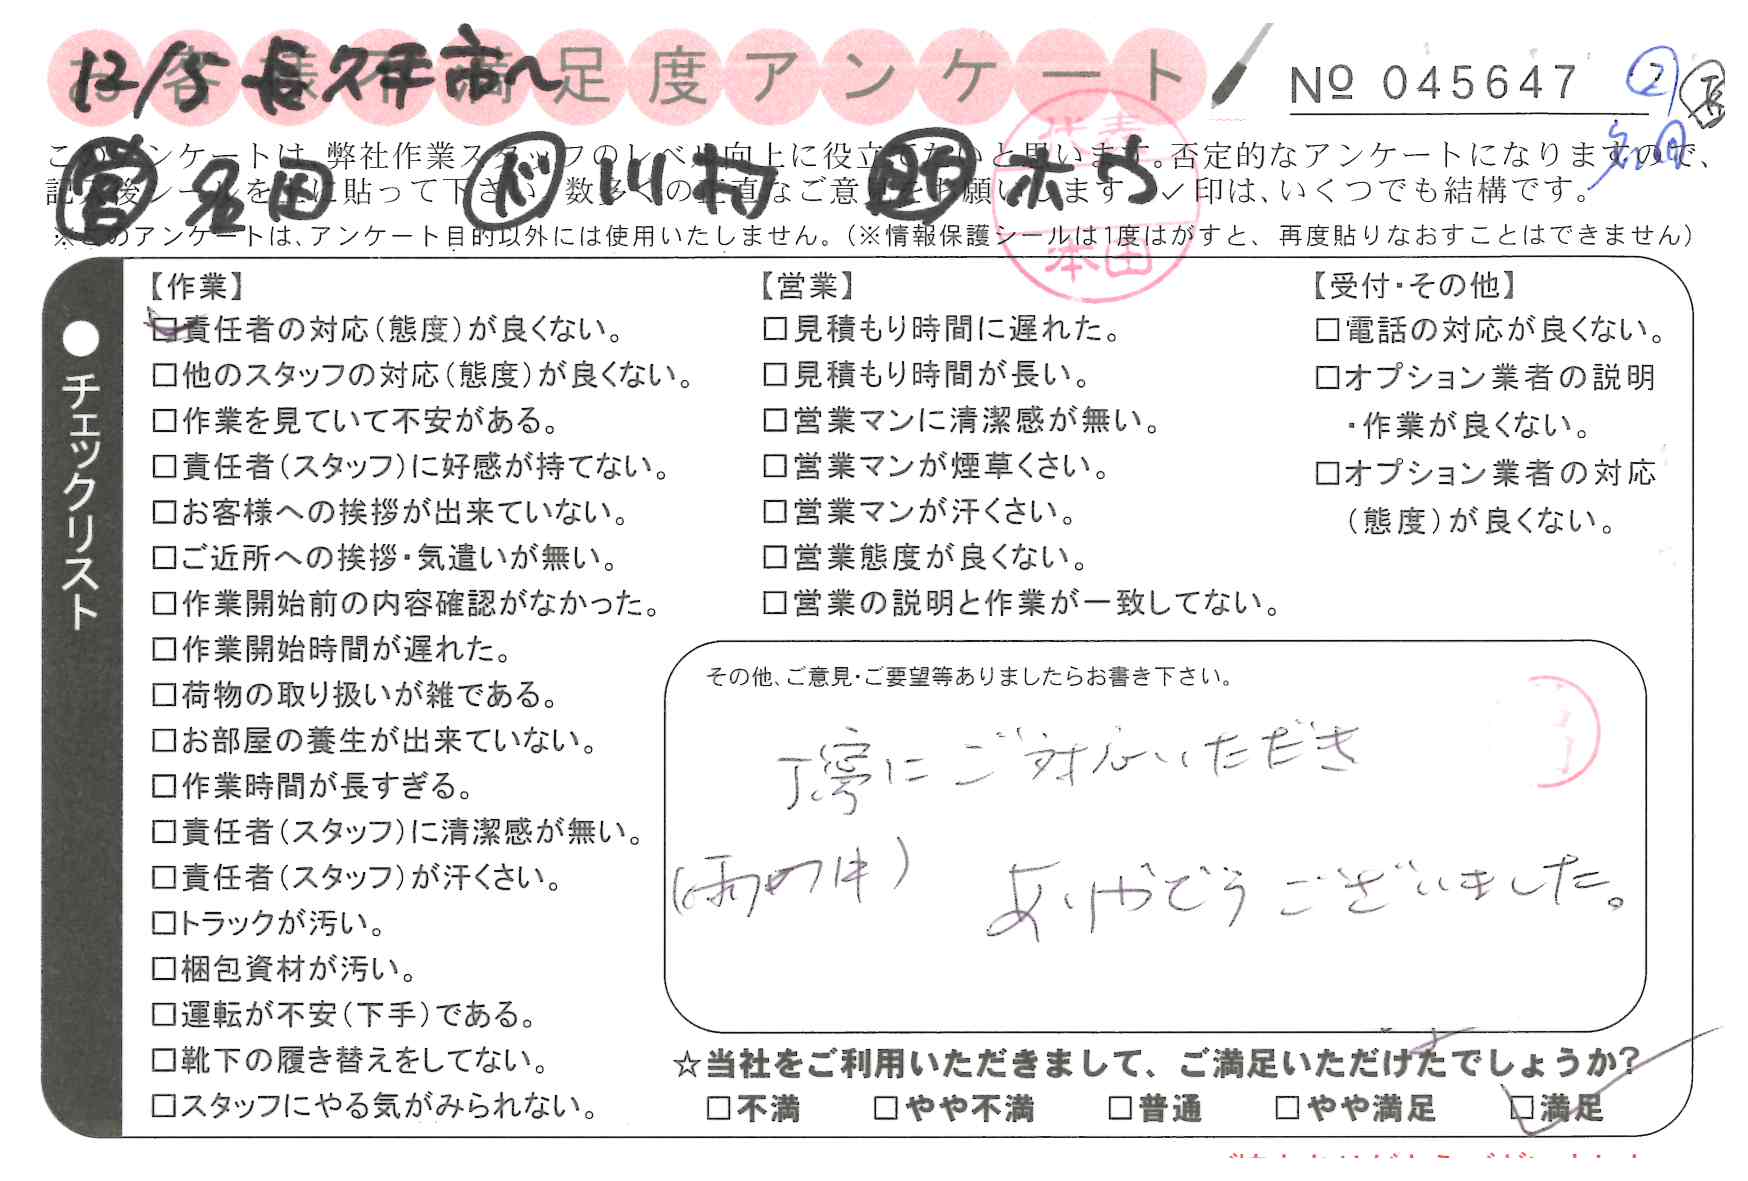 お客様不満足度アンケート
12/5 長久手市へ
№ 045647
② 長
名田
このアンケートは、弊社作業スタッフのレベル向上に役立てたいと思います。否定的なアンケートになりますので、
記入後シールを上に貼って下さい。数多くの正直なご意見をお願いします。✓印は、いくつでも結構です。
営 名田 ド 川村 助 赤坂
※このアンケートは、アンケート目的以外には使用いたしません。（※情報保護シールは1度はがすと、再度貼りなおすことはできません）
代表
本田
●チェックリスト
【作業】
□責任者の対応（態度）が良くない。
□他のスタッフの対応（態度）が良くない。
□作業を見ていて不安がある。
□責任者（スタッフ）に好感が持てない。
□お客様への挨拶が出来ていない。
□ご近所への挨拶・気遣いが無い。
□作業開始前の内容確認がなかった。
□作業開始時間が遅れた。
□荷物の取り扱いが雑である。
□お部屋の養生が出来ていない。
□作業時間が長すぎる。
□責任者（スタッフ）に清潔感が無い。
□責任者（スタッフ）が汗くさい。
□トラックが汚い。
□梱包資材が汚い。
□運転が不安（下手）である。
□靴下の履き替えをしてない。
□スタッフにやる気がみられない。
【営業】
□見積もり時間に遅れた。
□見積もり時間が長い。
□営業マンに清潔感が無い。
□営業マンが煙草くさい。
□営業マンが汗くさい。
□営業態度が良くない。
□営業の説明と作業が一致してない。
【受付・その他】
□電話の対応が良くない。
□オプション業者の説明
・作業が良くない。
□オプション業者の対応
（態度）が良くない。
その他、ご意見・ご要望等ありましたらお書き下さい。
丁寧にご対応いただき
(雨の中) ありがどうございました。
☆当社をご利用いただきまして、ご満足いただけたでしょうか?
□不満 □やや不満 □普通 □やや満足 □満足